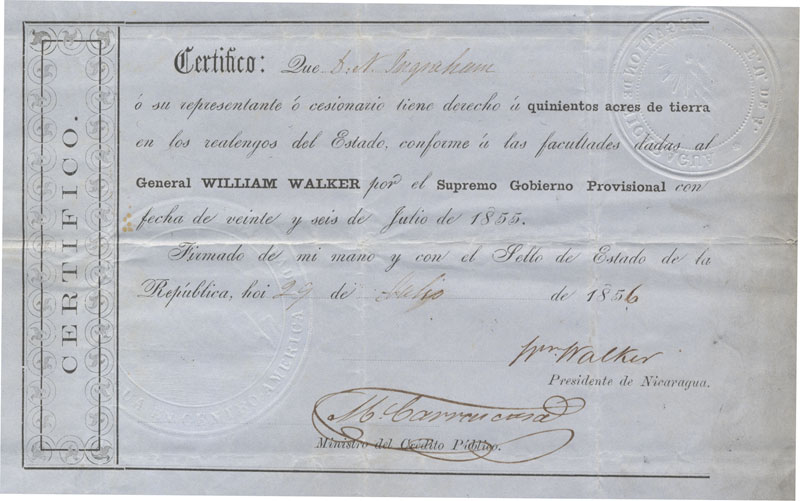 CERTIFICO.
Certifico: Que D. N. Ingraham
ó su representante ó cesionario tiene derecho á quinientos acres de tierra
en los realengos del Estado, conforme á las facultades dadas al
General WILLIAM WALKER por el Supremo Gobierno Provisional con
fecha de veinte y seis de Julio de 1855.
Firmado de mi mano y con el Sello de Estado de la
República, hoi 29 de Julio de 1856
Wm. Walker
Presidente de Nicaragua.
M. Carrascosa
Ministro del Crédito Público.
CENTRO AMERICA